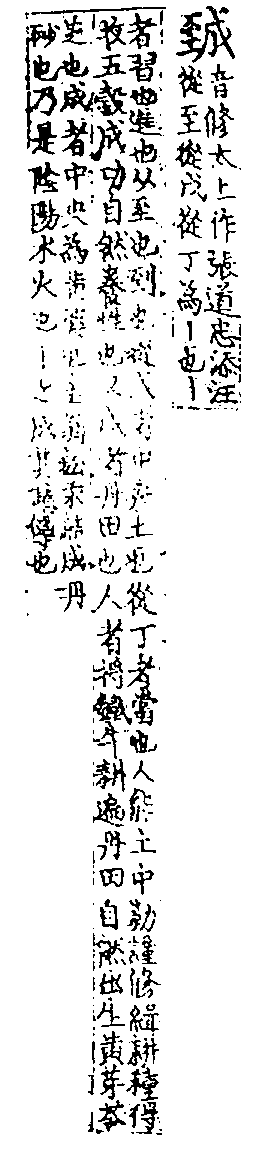 音修太上作張道忠添注
從至從戊從丁為丨也丨
者習也進也从至也到也從戊者中府土也從丁者當也人能土中勤謹修緝耕種得
收五穀成功自然養性也又戊者丹田也人者將鐵牛耕遍丹田自然出生黃芽
也成者中央為黃主求結成丹
砂也乃是陰陽水火也丨之成傳也